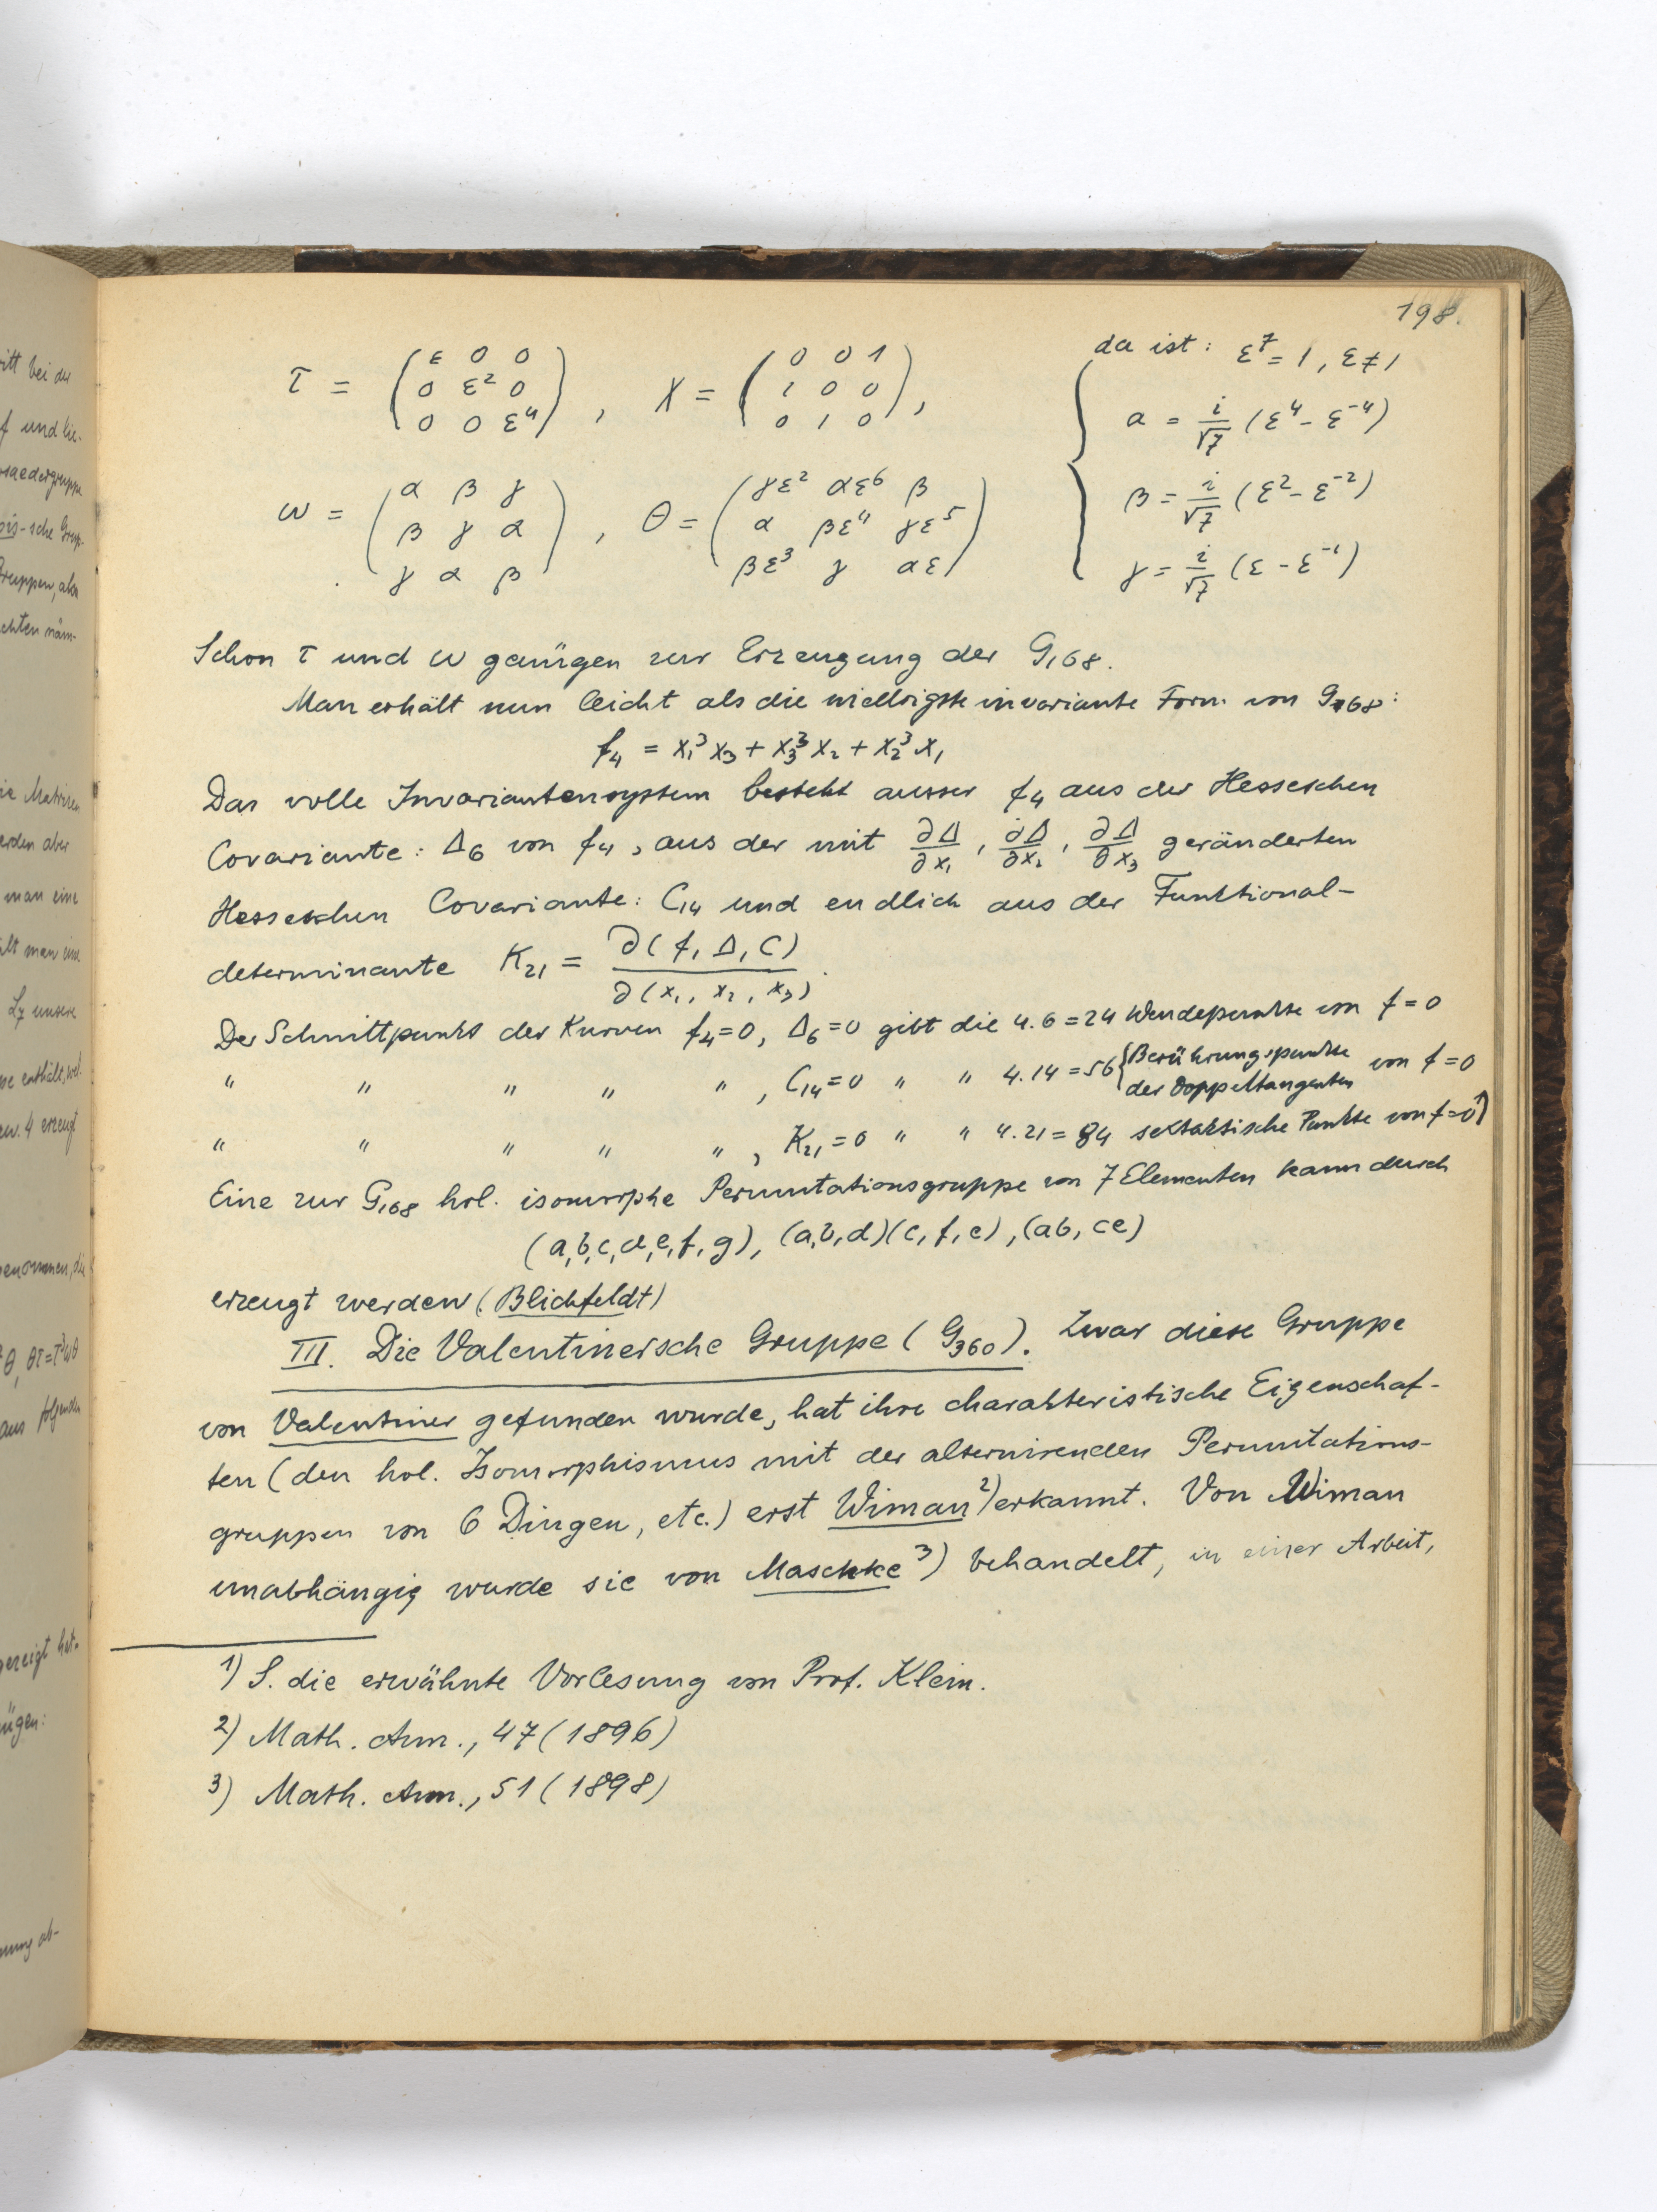 198.
τ = (ε 0 0 / 0 ε² 0 / 0 0 ε⁴), χ = (0 0 1 / 1 0 0 / 0 1 0),
ω = (α β γ / β γ α / γ α β), θ = (γε² αε⁶ β / α βε⁴ γε⁵ / βε³ γ αε)
da ist: ε⁷ = 1, ε ≠ 1
α = i/√7 (ε⁴ - ε⁻⁴)
β = i/√7 (ε² - ε⁻²)
γ = i/√7 (ε - ε⁻¹)
Schon τ und ω genügen zur Erzeugung der G₁₆₈.
Man erhält nun leicht als die niedrigste invariante Form von G₁₆₈:
f₄ = x₁³x₃ + x₃³x₂ + x₂³x₁
Das volle Invariantensystem besteht ausser f₄ aus der Hesseschen
Covariante: Δ₆ von f₄, aus der mit ∂Δ/∂x₁, ∂Δ/∂x₂, ∂Δ/∂x₃ geränderten
Hesseschen Covariante: C₁₄ und endlich aus der Funktional-
determinante K₂₁ = ∂(f, Δ, C)/∂(x₁, x₂, x₃).
Der Schnittpunkt der Kurven f₄=0, Δ₆=0 gibt die 4.6=24 Wendepunkte von f=0
" " " " " , C₁₄=0 " " 4.14=56 {Berührungspunkte der Doppeltangenten von f=0
" " " " " , K₂₁=0 " " 4.21=84 sextaktische Punkte von f=0¹)
Eine zur G₁₆₈ hol. isomorphe Permutationsgruppe von 7 Elementen kann durch
(a,b,c,d,e,f,g), (a,b,d)(c,f,e), (ab, ce)
erzeugt werden (Blichfeldt)
III. Die Valentinersche Gruppe (G₃₆₀). Zwar diese Gruppe
von Valentiner gefunden wurde, hat ihre charakteristische Eigenschaf-
ten (den hol. Isomorphismus mit der alternirenden Permutations-
gruppen von 6 Dingen, etc.) erst Wiman²) erkannt. Von Wiman
unabhängig wurde sie von Maschke³) behandelt, in einer Arbeit,
1) S. die erwähnte Vorlesung von Prof. Klein.
2) Math. Ann., 47 (1896)
3) Math. Ann., 51 (1898)